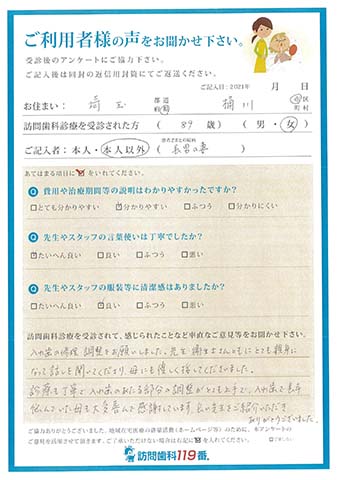 ご利用者様の声をお聞かせ下さい。
受診後のアンケートにご協力下さい。
ご記入後は同封の返信用封筒にてご返送ください。
ご記入日:2021年 月 日
お住まい: 埼玉 都道府県 桶川 市区町村
訪問歯科診療を受診された方 ( 89 歳) (男・女)
ご記入者:本人・本人以外 (長男の妻)
あてはまる項目に☑をいれてください。
Q 費用や治療期間等の説明はわかりやすかったですか?
□とても分かりやすい ☑分かりやすい □ふつう □分かりにくい
Q 先生やスタッフの言葉使いは丁寧でしたか?
☑たいへん良い □良い □ふつう □悪い
Q 先生やスタッフの服装等に清潔感はありましたか?
□たいへん良い ☑良い □ふつう □悪い
訪問歯科診療を受診されて、感じられたことなど率直なご意見等をお聞かせ下さい。
入れ歯の修理、調整をお願いしました。先生、衛生士さんともにとても親身に
なって話しを聞いてくださり、母にも優しく接してくださいました。
診療も丁寧で入れ歯のあたる部分の調整がとても上手で、入れ歯で長年
悩んでいた母も大変喜んで感謝しています。良い先生をご紹介いただき
ありがとうございました。
ご協力ありがとうございました。地域在宅医療の啓蒙活動(ホームページ等)のために、本アンケートの
ご意見を活用させて頂きます。ご了承いただけない場合は右記に☑を入れてください。
訪問歯科119番。